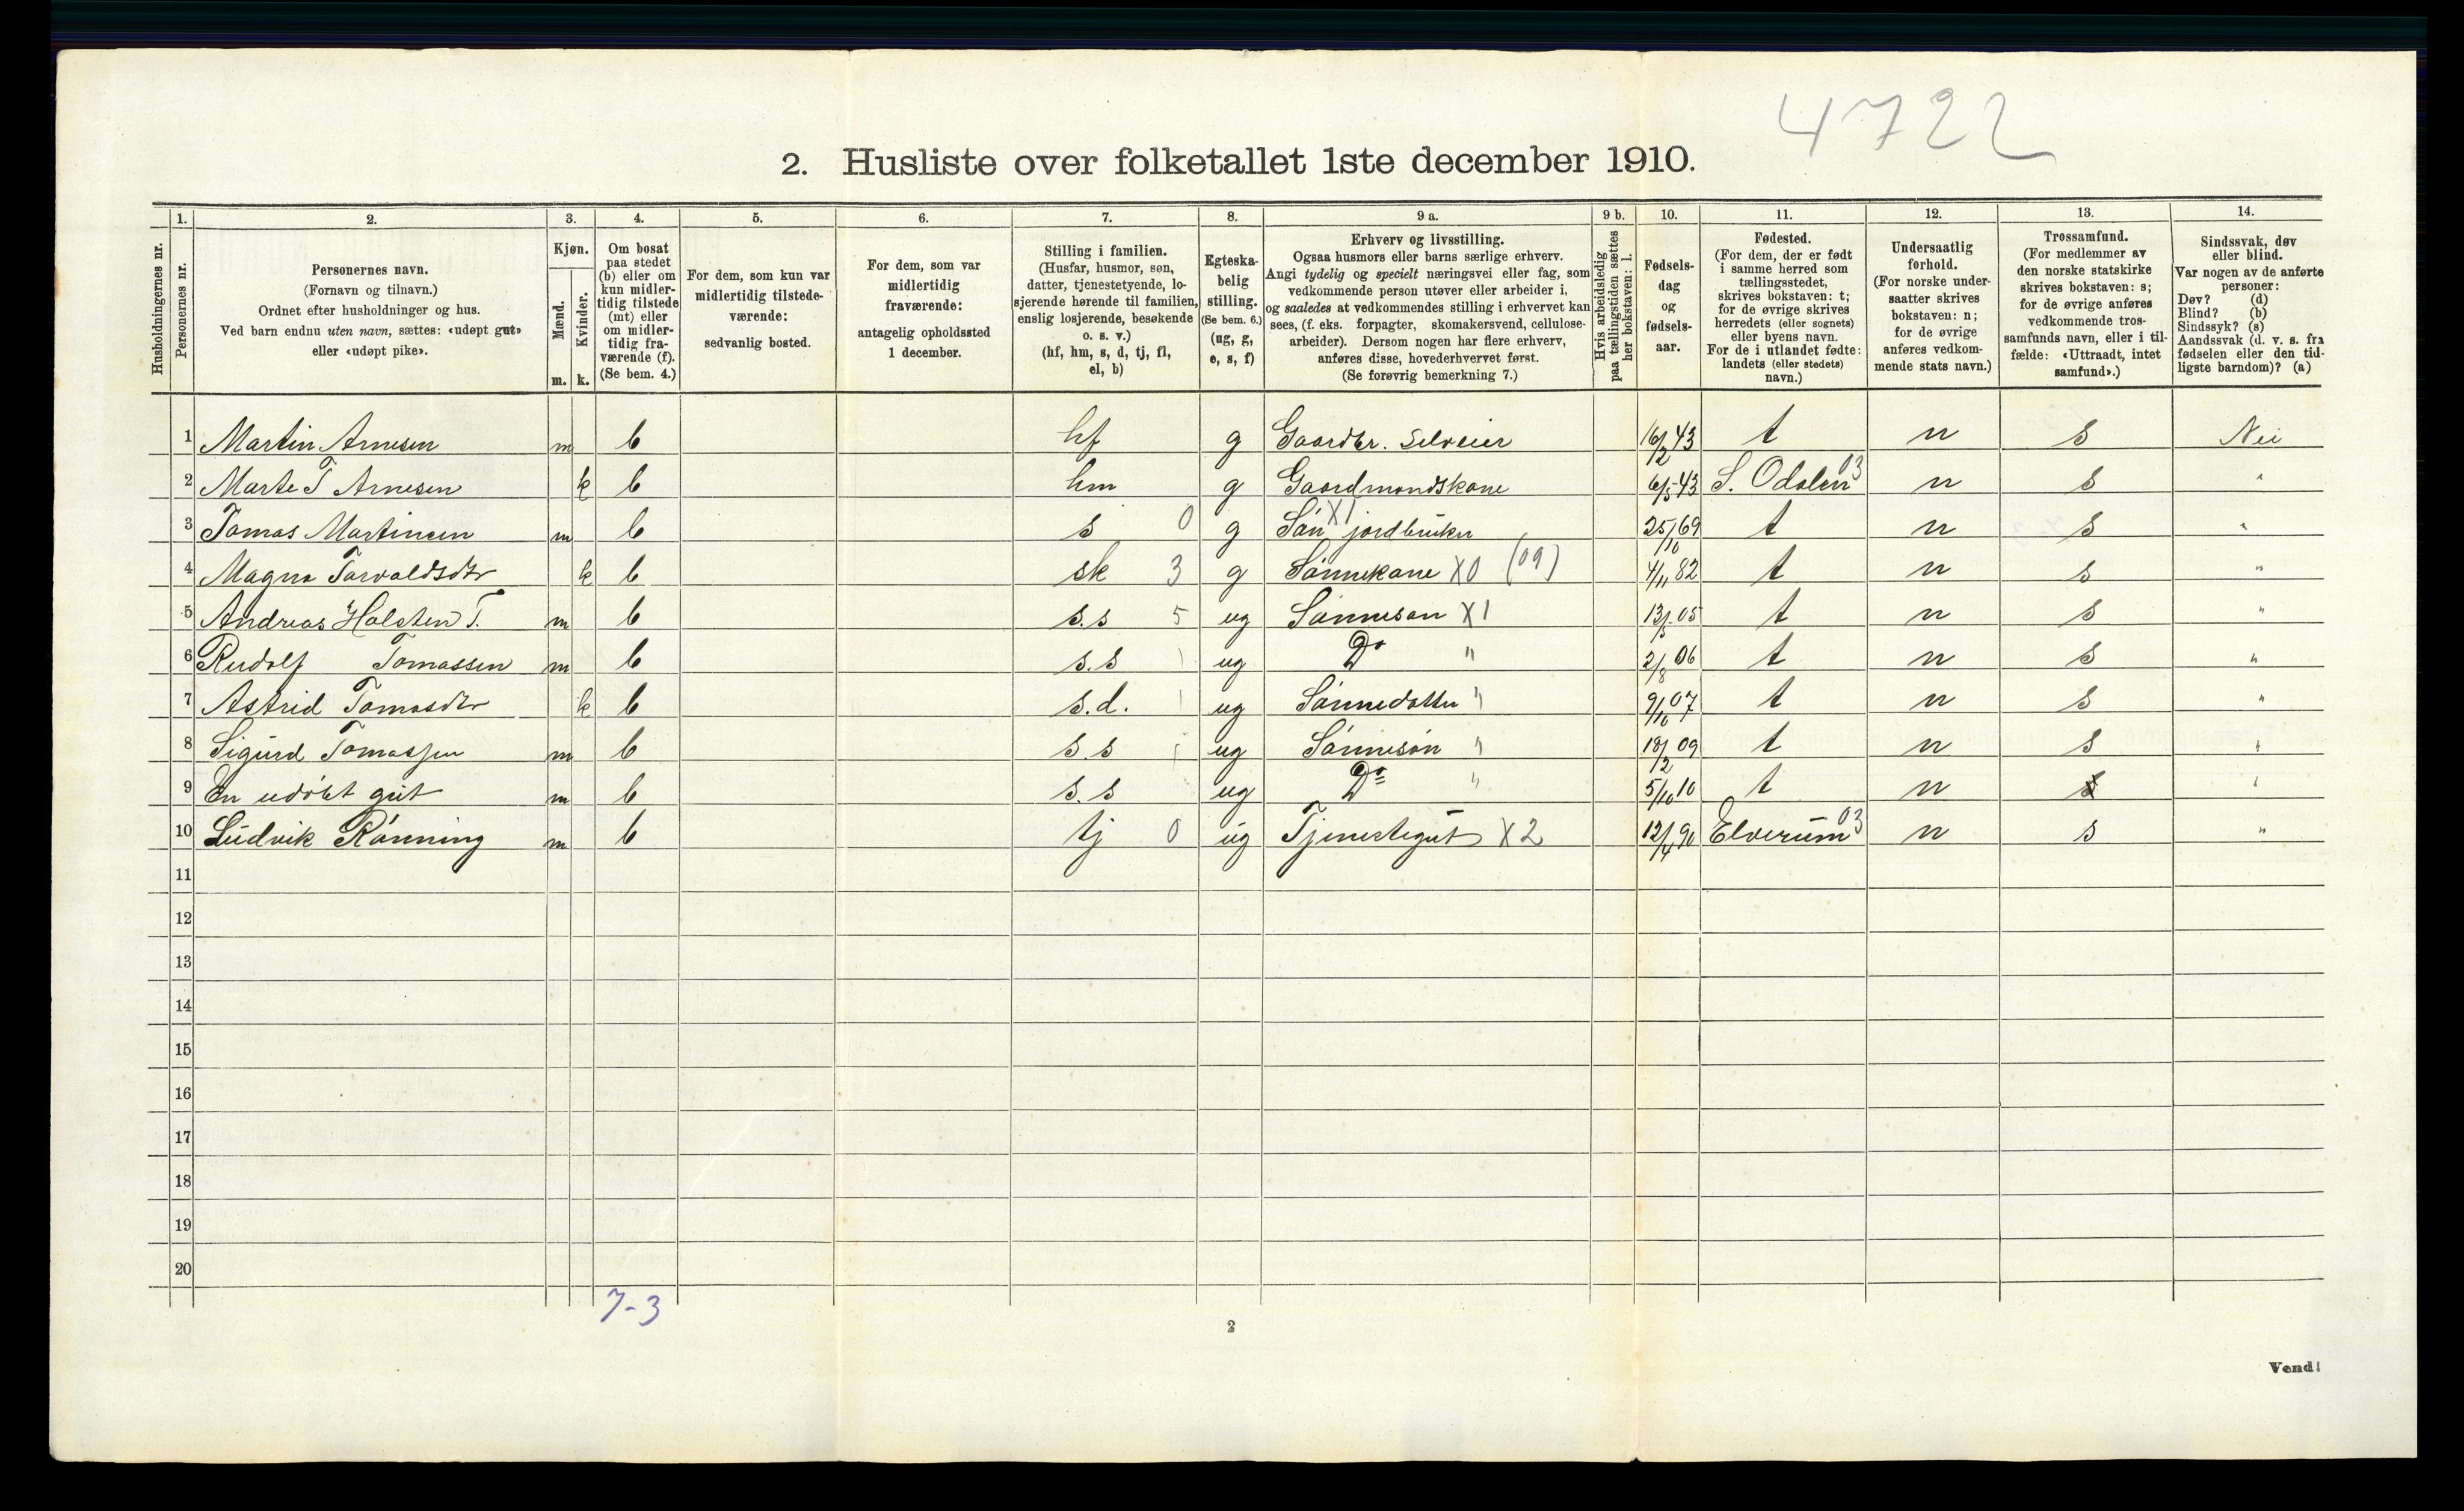 4722
2. Husliste over folketallet 1ste december 1910.
Husholdningernes nr.
1. Personernes nr.
2. Personernes navn.
(Fornavn og tilnavn.)
Ordnet efter husholdninger og hus.
Ved barn endnu uten navn, sættes: «udøpt gut»
eller «udøpt pike».
3. Kjøn.
Mænd. m.
Kvinder. k.
4. Om bosat
paa stedet
(b) eller om
kun midler-
tidig tilstede
(mt) eller
om midler-
tidig fra-
værende (f).
(Se bem. 4.)
5. For dem, som kun var
midlertidig tilstede-
værende:
sedvanlig bosted.
6. For dem, som var
midlertidig
fraværende:
antagelig opholdssted
1 december.
7. Stilling i familien.
(Husfar, husmor, søn,
datter, tjenestetyende, lo-
sjerende hørende til familien,
enslig losjerende, besøkende
o. s. v.)
(hf, hm, s, d, tj, fl,
el, b)
8. Egteska-
belig
stilling.
(Se bem. 6.)
(ug, g,
e, s, f)
9 a. Erhverv og livsstilling.
Ogsaa husmors eller barns særlige erhverv.
Angi tydelig og specielt næringsvei eller fag, som
vedkommende person utøver eller arbeider i,
og saaledes at vedkommendes stilling i erhvervet kan
sees, (f. eks. forpagter, skomakersvend, cellulose-
arbeider). Dersom nogen har flere erhverv,
anføres disse, hovederhvervet først.
(Se forøvrig bemerkning 7.)
9 b. Hvis arbeidsledig
paa tællingstiden sættes
her bokstaven: l.
10. Fødsels-
dag
og
fødsels-
aar.
11. Fødested.
(For dem, der er født
i samme herred som
tællingsstedet,
skrives bokstaven: t;
for de øvrige skrives
herredets (eller sognets)
eller byens navn.
For de i utlandet fødte:
landets (eller stedets)
navn.)
12. Undersaatlig
forhold.
(For norske under-
saatter skrives
bokstaven: n;
for de øvrige
anføres vedkom-
mende stats navn.)
13. Trossamfund.
(For medlemmer av
den norske statskirke
skrives bokstaven: s;
for de øvrige anføres
vedkommende tros-
samfunds navn, eller i til-
fælde: «Uttraadt, intet
samfund».)
14. Sindssvak, døv
eller blind.
Var nogen av de anførte
personer:
Døv? (d)
Blind? (b)
Sindssyk? (s)
Aandssvak (d. v. s. fra
fødselen eller den tid-
ligste barndom)? (a)
1 Martin Arnesen m b hf g Gaardbr. Selveier 16/2 43 t n s Nei
2 Marte T Arnesen k b hm g Gaardmandskone 6/5 43 S. Odalen 03 n s "
3 Tomas Martinsen m b s 0 g Søn X1 jordbruker 25/10 69 t n s "
4 Magna Torvaldsdtr k b sk 3 g Sønnekone X0 (09) 4/11 82 t n s "
5 Andreas Halsten T. m b s.s 5 ug Sønneson X1 13/5 05 t n s "
6 Rudolf Tomassen m b s.s 1 ug Do " 2/8 06 t n s "
7 Astrid Tomasdtr k b s.d. 1 ug Sønnedatter " 9/10 07 t n s "
8 Sigurd Tomassen m b s.s 1 ug Sønnesøn " 18/2 09 t n s "
9 En udöbt gut m b s.s ug Do " 5/10 10 t n s "
10 Ludvik Rönning m b tj 0 ug Tjenestegut X2 12/4 90 Elverum 03 n s "
11
12
13
14
15
16
17
18
19
20
7-3
2
Vend!